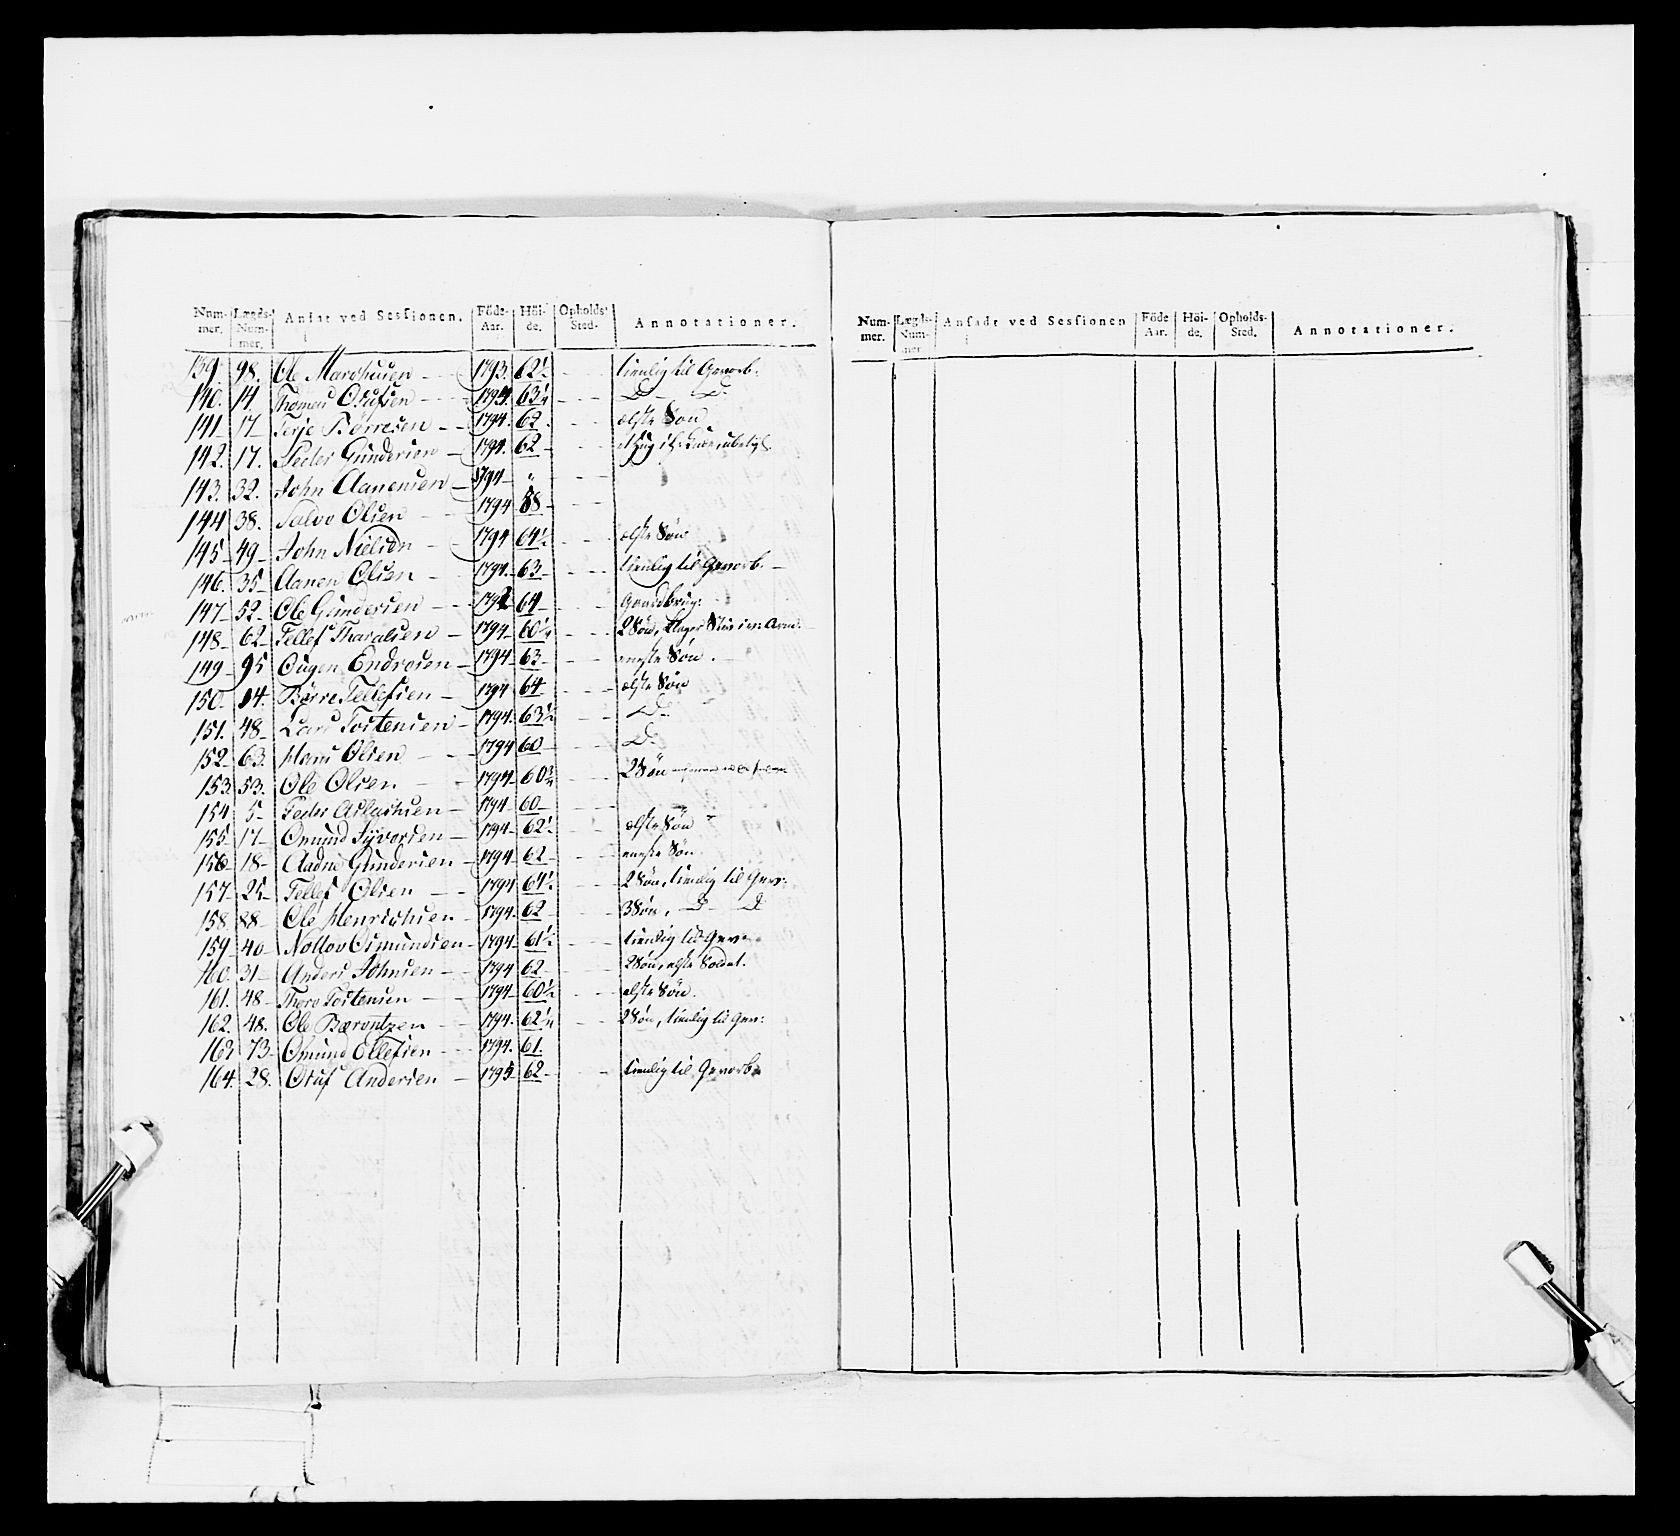 Num- Lægds- Ansat ved Sessionen. Föde- Höi- Opholds- Annotationer.
mer. Num- Aar. de. Sted.
mer.
139. 98. Ole 1793. 62½ tienlig til Gevorb.
140. 14. Thomas Olufsen 1794. 63¼ D D
141 17 Terje Börresen 1794. 62 ælste Søn
142. 17. Peder Gundersen 1794. 62
143. 32. John Aanensen 1794 "
144 38. Salve Olsen 1794 58
145 49 John Nielsen 1794 64½ ælste Søn
146. 35 Aanen Olsen 1794. 63 tienlig til Gevorb.
147 52 Ole Gundersen 1792 64 Gaardbrug:
148 62 Tellef Tharalsen 1794 60¼ 2 Søn,
149 95 Ougen Endresen 1794 63 eneste Søn.
150. 14. Börre Tellefsen 1794 64 ælste Søn
151. 48 Lars Tostensen 1794. 63½ D
152 63. Hans Olsen 1794 60 D.
153 53. Ole Olsen 1794 60¾ 2 Søn
154 5 Peder Aslachsen 1794 60
155 17 Omund Syversen 1794 62½ ælste Søn
156 18 Aadne Gundersen 1794 62 eneste Søn
157 25 Tellef Olsen 1794 64½ 2 Søn, tienlig til Gev:
158 88 Ole Henrichsen 1794. 62 3 Søn, D D
159 40 Nottov Osmundsen 1794 61½ tienlig til Gev
160 31 Anders Johnsen 1794 62 2 Søn, ælste Soldat.
161. 48 Thore Tostensen 1794 60½ ælste Søn.
162. 48. Ole Berentzen 1794. 62¼ 2 Søn, tienlig til Gev:
163 73 Omund Ellefsen 1794. 61
164. 28. Oluf Andersen 1795 62 tienlig til Gevorb
Num- Lægds- Ansadt ved Sessionen Föde Höi- Opholds- Annotationer.
mer. Num- Aar. de. Sted.
mer